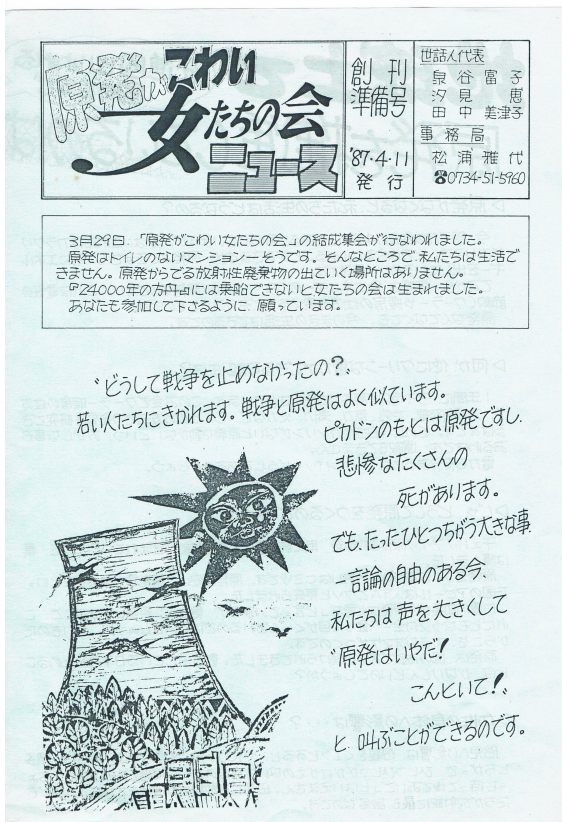 原発がこわい
女たちの会
ニュース
創刊
準備号
'87・4・11
発行
世話人代表
泉谷富子
汐見恵
田中美津子
事務局
松浦雅代
☎0734-51-5960
3月29日、「原発がこわい女たちの会」の結成集会が行なわれました。
原発はトイレのないマンション―そうです。そんなところで私たちは生活で
きません。原発からでる放射性廃棄物の出ていく場所はありません。
『24000年の方舟』には乗船できないと女たちの会は生まれました。
あなたも参加して下さるように、願っています。
〝どうして戦争を止めなかったの?〟
若い人たちにきかれます。戦争と原発はよく似ています。
ピカドンのもとは原発ですし、
悲惨なたくさんの
死があります。
でも、たったひとつちがう大きな事
―言論の自由のある今、
私たちは声を大きくして
〝原発はいやだ!
こんといて!〟
と、叫ぶことができるのです。